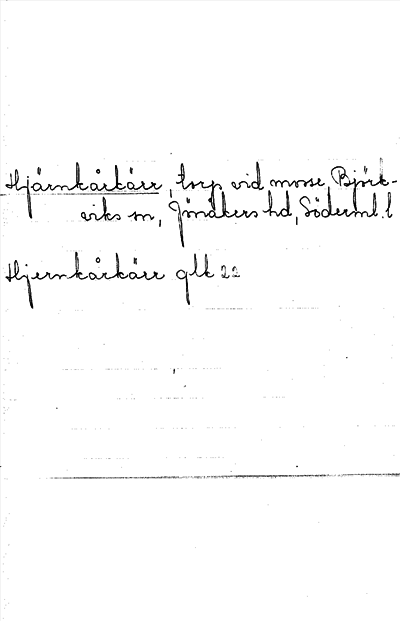 Hjärnkåkärr, torp vid mosse, Björk-
viks sn, Jönåkers hd, Söderml. l
Hjernkåkärr glk 22